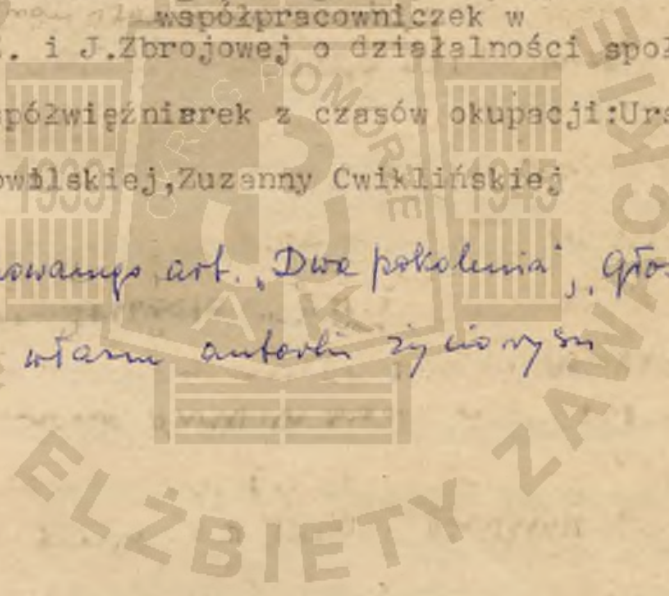 współpracowniczek w
. i J.Zbrojowej o działalności społ
półwięźniarek z czasów okupacji:Urs
owilskiej,Zuzanny Cwiklińskiej
owanego art. „Dwa pokolenia”, Głos
własne autorki życiorysu
OKRĘG POMORZE
1939 1945
AK
ELŻBIETY ZAWACKIE